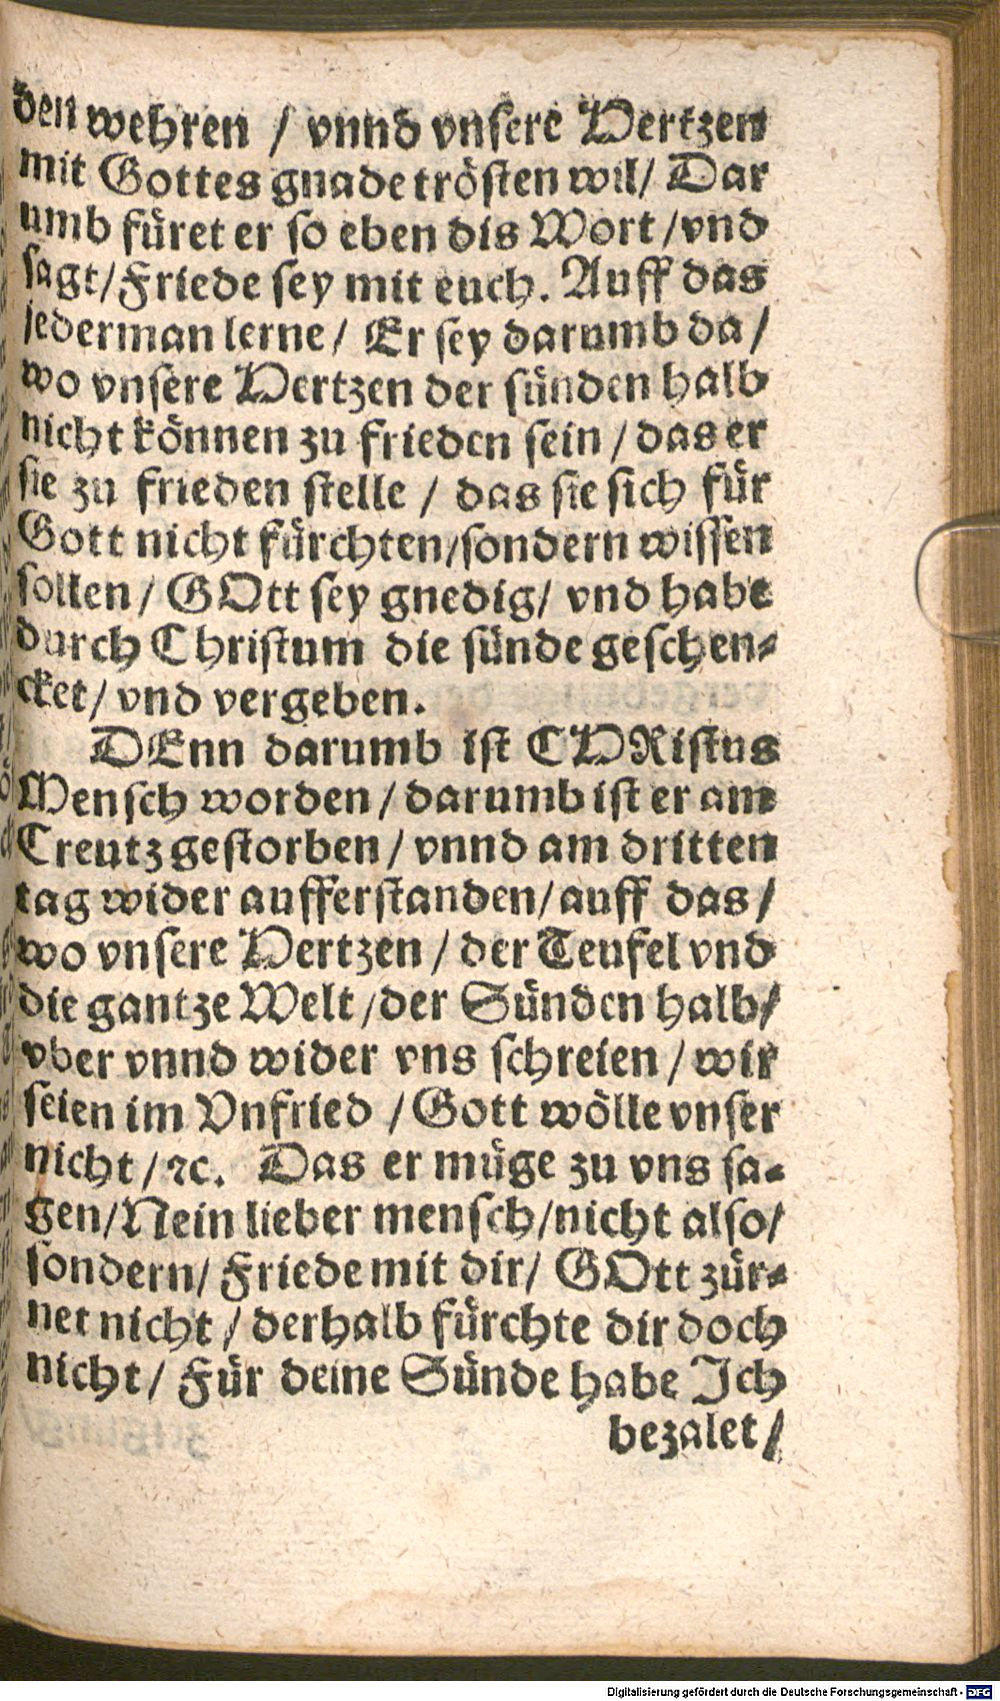 den wehren / vnnd vnsere Hertzen
mit Gottes gnade trösten wil / Dar
umb füret er so eben dis Wort / vnd
sagt / Friede sey mit euch. Auff das
jederman lerne / Er sey darumb da /
wo vnsere Hertzen der sünden halb
nicht können zu frieden sein / das er
sie zu frieden stelle / das sie sich für
Gott nicht fürchten / sondern wissen
sollen / GOtt sey gnedig / vnd habe
durch Christum die sünde geschen-
cket / vnd vergeben.
DEnn darumb ist CHRistus
Mensch worden / darumb ist er am
Creutz gestorben / vnnd am dritten
tag wider aufferstanden / auff das /
wo vnsere Hertzen / der Teufel vnd
die gantze Welt / der Sünden halb /
vber vnnd wider vns schreien / wir
seien im Vnfried / Gott wölle vnser
nicht / ꝛc. Das er müge zu vns sa-
gen / Nein lieber mensch / nicht also /
sondern / Friede mit dir / GOtt zür-
net nicht / derhalb fürchte dir doch
nicht / Für deine Sünde habe Ich
bezalet /
Digitalisierung gefördert durch die Deutsche Forschungsgemeinschaft - DFG